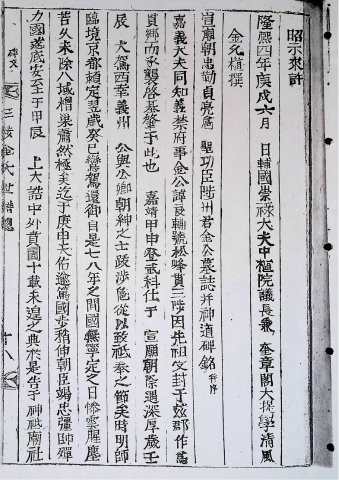 昭示來許
隆熙四年庚戌六月 日輔國崇祿大夫中樞院議長兼 奎章閣大提學清風
金允植撰
宣廟朝忠勤貞亮扈 聖功臣陟州君金公墓誌并神道碑銘 并序
嘉義大夫同知義禁府事金公諱良輔號松峰貫三陟因先祖文封于玆郡作爲
貫鄉而承襲啓基肇于此也 嘉靖甲申登武科仕于 宣廟朝際遇深厚歲壬
辰 大駕西幸義州 公與公卿朝紳之士跋涉危從以致祗奉之節矣時明師
臨境京都頼定翌歲癸巳鸞駕還御自是七八年之間國無寧定之日慘雲腥塵
苦久未除八域檜巢蕭然極矣迄于庚申天佑逾篤國步稍伸朝臣竭忠彊師殫
力國遂底安至于甲辰 上大誥中外賁圖十載未遑之典於是告于神祗廟社
碑文 三陟金氏世譜 十八